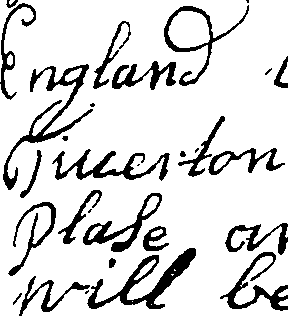 England
Tiuerton
Plase an
will be